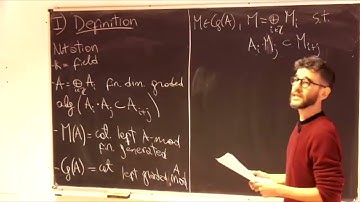 I) Definition
Notation
- k = field
- A = ⊕ Aᵢ fin. dim. graded
i∈ℤ
alg (Aᵢ·Aⱼ ⊂ Aᵢ₊ⱼ)
- M(A) = cat. left A-mod
fin generated
- G(A) = cat left graded A mod
M∈G(A), M = ⊕ Mᵢ s.t.
i∈ℤ
Aᵢ·Mⱼ ⊂ Mᵢ₊ⱼ